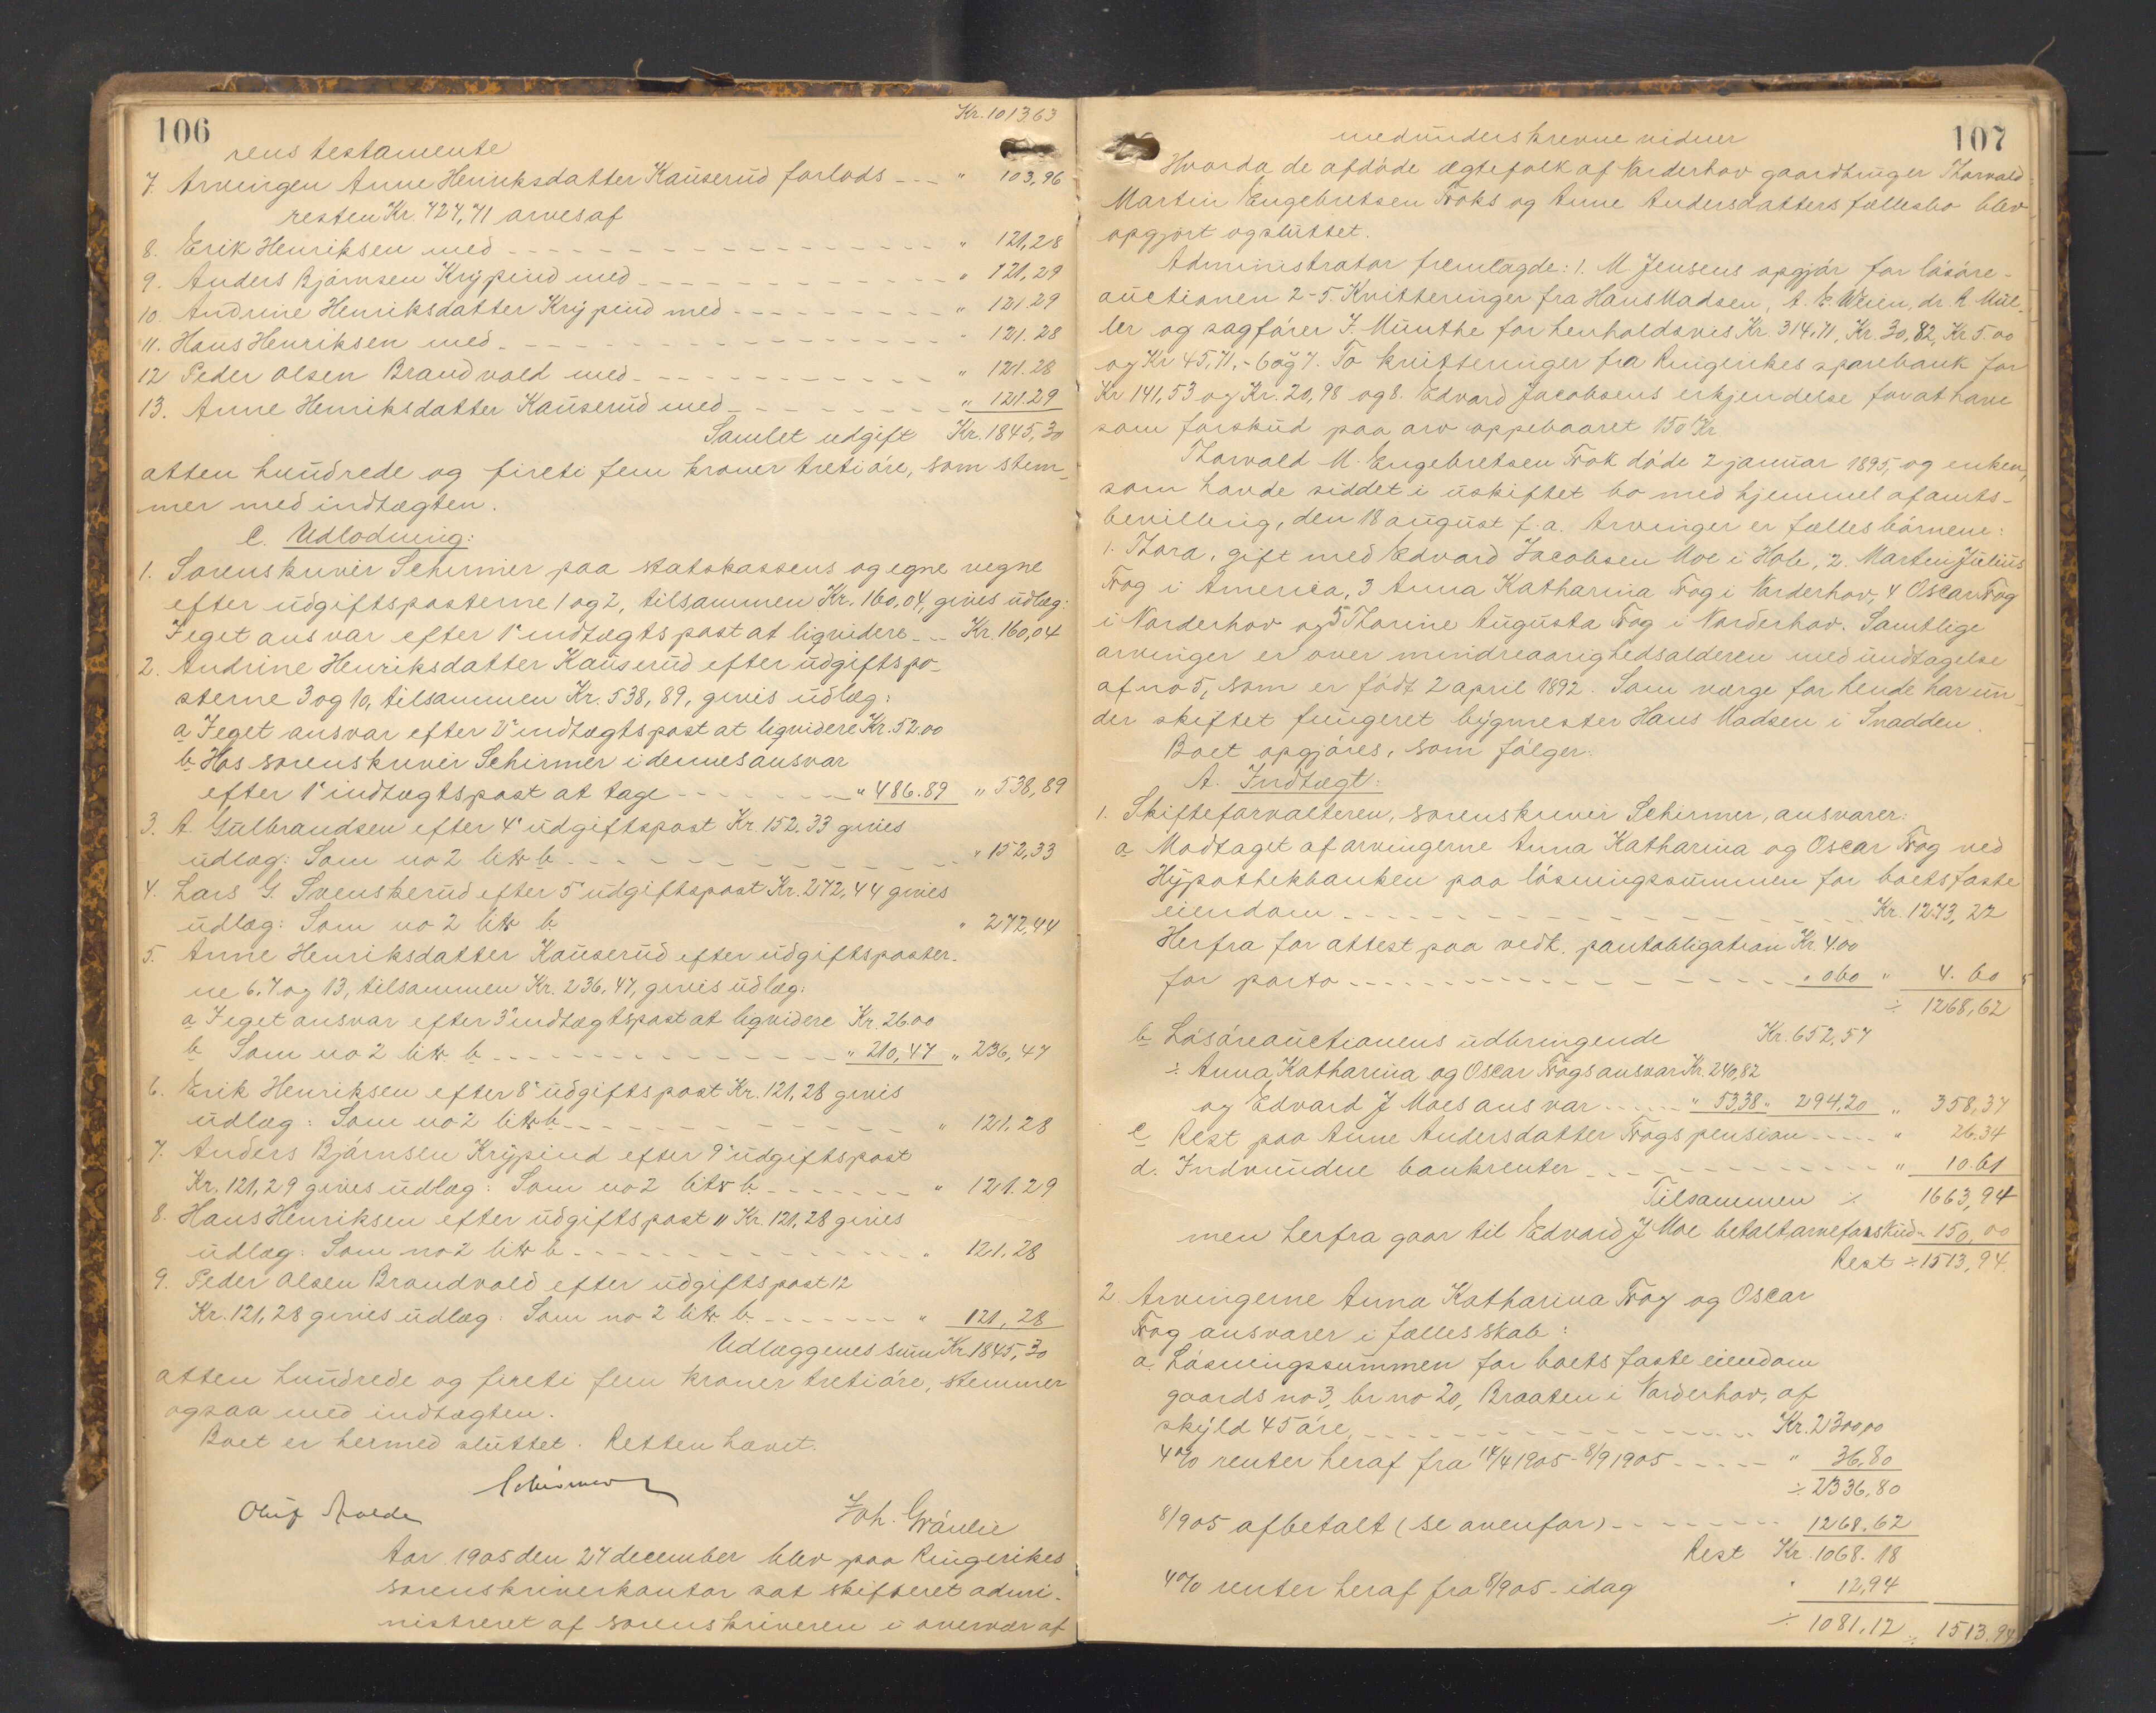 106
Kr. 1013.63
rens testamente
7. Arvingen Anne Henriksdatter Kauserud forlods - - - " 103,96
resten Kr. 727,71 arves af
8. Erik Henriksen med - - - " 121,28
9. Anders Bjørnsen Krypind med - - - " 121,29
10. Andrine Henriksdatter Krypind med - - - " 121.29
11. Hans Henriksen med - - - " 121.28
12 Peder Olsen Brandvold med - - - " 121.28
13. Anne Henriksdatter Kauserud med - - - " 121.29
Samlet udgift Kr. 1845,30
atten hundrede og fireti fem kroner tretiøre, som stem-
mer med indtægten.
C. Udlodning:
1. Sorenskriver Schirmer paa statskassens og egne vegne
efter udgiftsposterne 1 og 2, tilsammen Kr. 160,04, gives udlæg:
I eget ansvar efter 1' indtægtspost at liqvidere - - Kr. 160,04
2. Andrine Henriksdatter Kauserud efter udgiftspo-
sterne 3 og 10, tilsammen Kr. 538,89, gives udlæg:
a I eget ansvar efter 2' indtægtspost at liqvidere Kr. 52.00
b Hos sorenskriver Schirmer i dennes ansvar
efter 1' indtægtspost at tage - - - " 486.89 " 538,89
3. A. Gulbrandsen efter 4' udgiftspost Kr. 152.33 gives
udlæg: Som no 2 litr b - - - " 152,33
4. Lars G. Svenskerud efter 5' udgiftspost Kr. 272,44 gives
udlæg: Som no 2 litr b " 272,44
5. Anne Henriksdatter Kauserud efter udgiftsposter-
ne 6, 7 og 13, tilsammen Kr. 236,47, gives udlæg:
a I eget ansvar efter 3' indtægtspost at liqvidere Kr. 26.00
b Som no 2 litr b - - - " 210,47 " 236,47
6. Erik Henriksen efter 8' udgiftspost Kr. 121,28 gives
udlæg: Som no 2 litr b - - - " 121.28
7. Anders Bjørnsen Krypind efter 9' udgiftspost
Kr. 121,29 gives udlæg: Som no 2 litr b - - - " 121.29
8. Hans Henriksen efter udgiftspost 11 Kr. 121,28 gives
udlæg: Som no 2 litr b - - - " 121.28
9. Peder Olsen Brandvold efter udgiftspost 12
Kr. 121,28 gives udlæg: Som no 2 litr b - - - " 121,28
Udlæggenes sum Kr 1845,30
atten hundrede og fireti fem kroner tretiøre, stemmer
ogsaa med indtægten.
Boet er hermed sluttet. Retten hævet.
Schirmer
Oluf Joh.
Aar 1905 den 27 december blev paa Ringerikes
sorenskriverkontor sat skifteret admi-
nistreret af sorenskriveren i overvær af
107
medunderskrevne vidner
Hvorda de afdøde ægtefolk af Norderhov gaardbruger Thorvald
Martin Engebretsen Togs og Anne Andersdatters fællesbo blev
opgjort og sluttet.
Administrator fremlagde: 1. M Jensens opgjør for løsøre-
auctionen 2-5. Kvitteringer fra Hans Madsen, A. K. Weien, dr. R Mül-
ler og sagfører J. Munthe for henholdsvis Kr. 314,71, Kr. 30,82, Kr 5.00
og Kr 45,71, - 6 og 7. To kvitteringer fra Ringerikes sparebank for
Kr 141,53 og Kr. 20,98 og 8. Edvard Jacobsens erkjendelse for at have
som forskud paa arv oppebaaret 150 Kr
Thorvald M. Engebretsen døde 2 januar 1895, og enken,
som havde siddet i uskiftet bo med hjemmel af amts-
bevilling, den 18 august f. a. Arvinger er fælles børnene:
1. Thora, gift med Edvard Jacobsen Moe i Hole, 2. Martin Julius
i America, 3 Anna Katharina i Norderhov, 4 Oscar
i Norderhov og 5 Thorine Augusta i Norderhov. Samtlige
arvinger er over mindreaarighedsalderen med undtagelse
af no 5, som er født 2 april 1892. Som værge for hende har un-
der skiftet fungeret bygmester Hans Madsen i Snadden.
Boet opgjøres, som følger:
A. Indtægt:
1. Skifteforvalteren, sorenskriver Schirmer, ansvarer:
a Modtaget af arvingerne Anna Katharina og Oscar ved
Hypothekbanken paa løsningssummen for boets faste
eiendom - - - Kr. 1273,22
Herfra for attest paa vedk. pantobligation Kr. 4.00
for porto - - - " 0 60 " 4.60
÷ 1268,62
b Løsøreauctionens udbringende Kr. 652,57
÷ Anna Katharina og Oscar ansvar Kr. 240,82
og Edvard J Moes ansvar - - - " 53,38 " 294,20 " 358,37
c Rest paa Anne Andersdatter pension - - - " 26.34
d. Indvundne bankrenter - - - " 10.61
Tilsammen ÷ 1663,94
men herfra gaar til Edvard J Moe betalt arveforskud " 150,00
Rest ÷ 1513,94.
2. Arvingerne Anna Katharina og Oscar
ansvarer i fællesskab:
a. Løsningssummen for boets faste eiendom
gaards no 3, br no 20, Braaten i Norderhov, af
skyld 45 øre, - - - Kr. 2300,00
4% renter heraf fra 14/4 1905 - 8/9 1905 - - - " 36,80
÷ 2336,80
8/9 05 afbetalt (se ovenfor) - - - 1268.62
Rest Kr. 1068.18
4% renter heraf fra 8/9 05 - idag " 12,94
÷ 1081,12 ÷ 1513.94